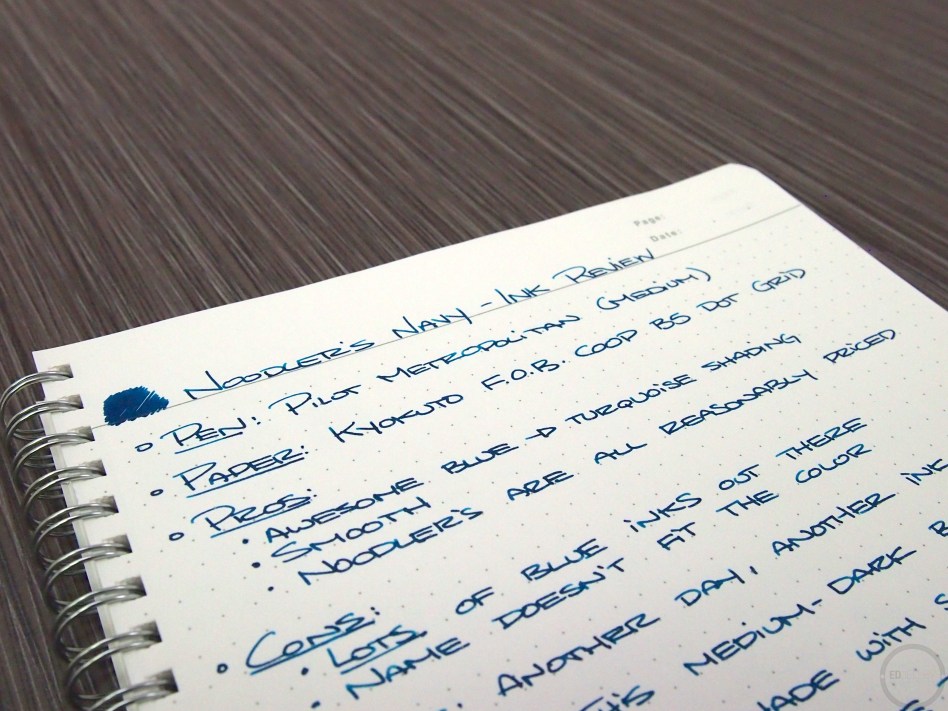 Page:
Date:
NOODLER'S NAVY - INK REVIEW
PEN: PILOT METROPOLITAN (MEDIUM)
PAPER: KYOKUTO F.O.B. COOP B5 DOT GRID
PROS:
• AWESOME BLUE → TURQUOISE SHADING
• SMOOTH
• NOODLER'S ARE ALL REASONABLY PRICED
CONS:
• LOTS OF BLUE INKS OUT THERE
• NAME DOESN'T FIT THE COLOR
ANOTHER DAY, ANOTHER INK
THIS MEDIUM-DARK
MADE WITH
ED